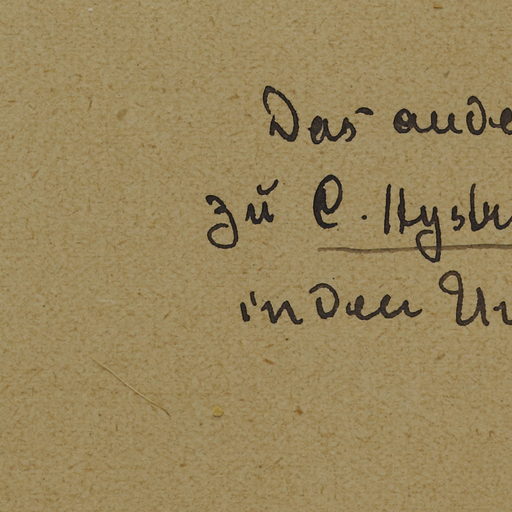 Das ande
zu C. Hyst
in den Ur